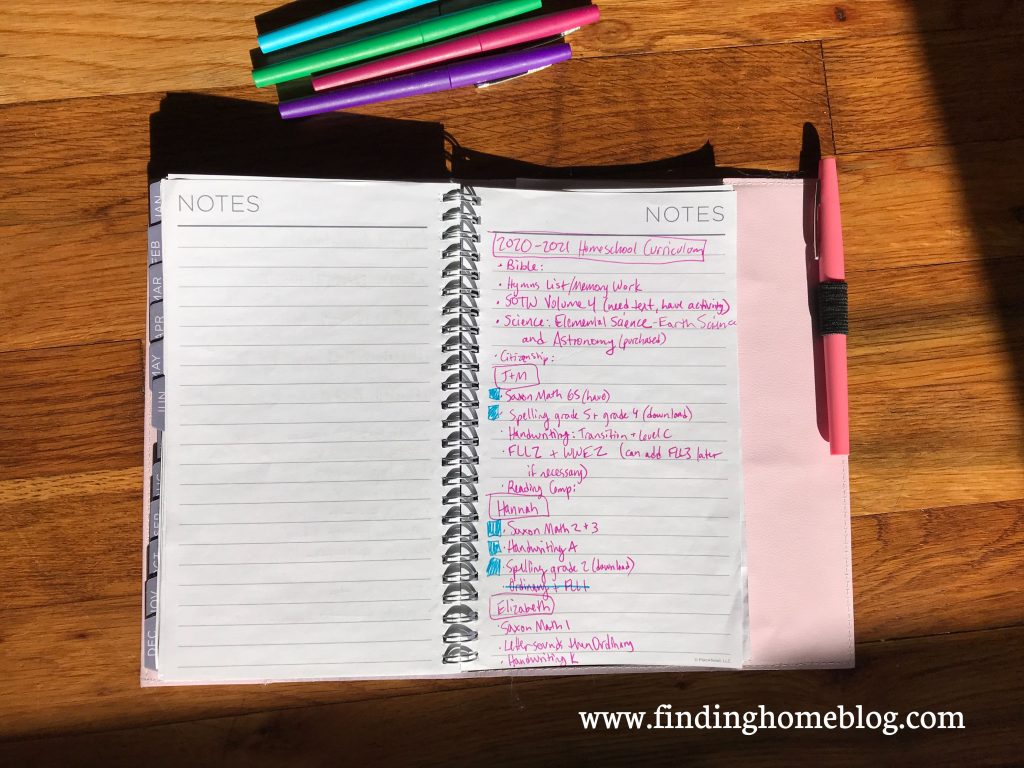 NOTES
NOTES
JAN
FEB
MAR
APR
MAY
JUN
DEC
2020-2021 Homeschool Curriculum
• Bible:
• Hymns List/Memory Work
• SOTW Volume 4 (need text, have activity)
• Science: Elemental Science-Earth Science
and Astronomy (purchased)
• Citizenship:
J+M
• Saxon Math 65 (have)
• Spelling grade 5 + grade 4 (download)
Handwriting: Transition + Level C
• FLL2 + WWE2 (can add FLL3 later
if necessary)
• Reading Comp:
Hannah
• Saxon Math 2+3
• Handwriting A
• Spelling grade 2 (download)
• Ordinary + FLL1
Elizabeth
• Saxon Math 1
• Letter sounds then Ordinary
• Handwriting K
www.findinghomeblog.com